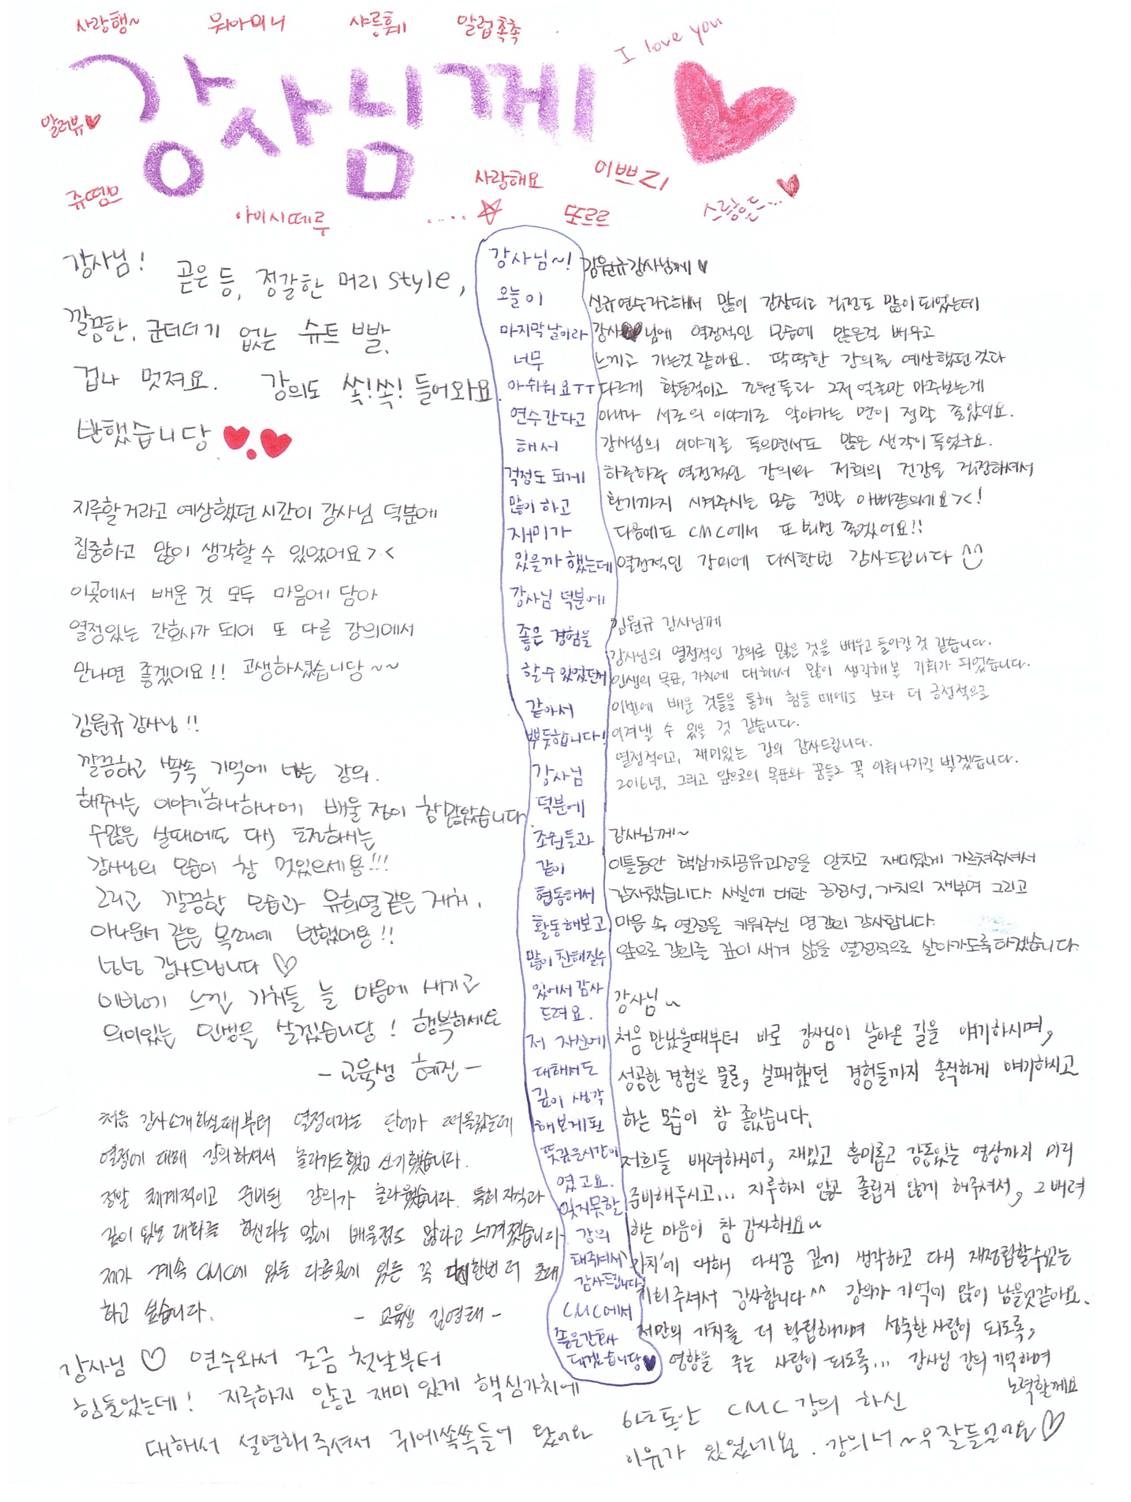 사랑행~ 워아이니 샤릉훼 알럽촉촉
I love you
강사님께
알러뷰
쥬뗌므
아이시떼루
..... 사랑해요
이쁘리
또르르
스릉흔드...
강사님! 곧은 등, 정갈한 머리 style,
깔끔한, 군더더기 없는 슈트 빨,
겁나 멋져요. 강의도 쏙!쏙! 들어와요.
반했습니당
지루할거라고 예상했던 시간이 강사님 덕분에
집중하고 많이 생각할 수 있었어요><
이곳에서 배운 것 모두 마음에 담아
열정있는 간호사가 되어 또 다른 강의에서
만나면 좋겠어요!! 고생하셨습니당~~
김원규 강사님!!
깔끔하고 쏙쏙 기억에 남는 강의.
해주시는 이야기 하나하나에 배울 점이 참 많았습니다
수많은 실패에도 다시 도전하시는
강사님의 모습이 참 멋있으세용!!!
그리고 깔끔한 모습과 유희열같은 재치,
아나운서 같은 목소리에 반했어용!!
넘넘 감사드립니다♡
이번에 느낀 가치들 늘 마음에 새기고
의미있는 인생을 살겠습니당! 행복하세요
- 교육생 혜진 -
처음 강사소개 하실때부터 열정이라는 단어가 떠올랐는데
열정에 대해 강의하셔서 놀라기도했고 신기했습니다.
정말 체계적이고 준비된 강의가 놀라웠습니다. 특히 자식과
깊이 있는 대화를 하신다는 말이 배울점도 많다고 느껴졌습니다.
제가 계속 CMC에 있든 다른곳에 있든 꼭 다시한번 더 초대
하고 싶습니다. - 교육생 김영태 -
강사님♡ 연수와서 조금 첫날부터
힘들었는데! 지루하지 않고 재미 있게 핵심가치에
대해서 설명해주셔서 귀에쏙쏙들어 왔어요
강사님~!
오늘이
마지막날이라
너무
아쉬워요ㅜㅜ
연수간다고
해서
걱정도 되게
많이 하고
재미가
있을까 했는데
강사님 덕분에
좋은 경험을
할 수 있었던거
같아서
뿌듯합니다!
강사님
덕분에
조원들과
같이
협동해서
활동해보고
많이 친해질수
있어서 감사
드려요.
저 자신에
대해서도
깊이 생각
해보게된
뜻깊은시간이
였고요.
잊지못할
강의
해주셔서
감사드립니다!
CMC에서
좋은간호사
되겠습니당♥
김원규강사님께♥
신규연수라고해서 많이 긴장되고 걱정도 많이 되었는데
강사님에 열정적인 모습에 많은걸 배우고
느끼고 가는것 같아요. 딱딱한 강의를 예상했던것과
다르게 활동적이고 조원들과 그저 얼굴만 마주보는게
아니라 서로의 이야기로 알아가는 면이 정말 좋았어요.
강사님의 이야기를 들으면서도 많은 생각이 들었구요.
하루하루 열정적인 강의와 저희의 건강을 걱정하셔서
환기까지 시켜주시는 모습 정말 아빠같으세요><!
다음에도 CMC에서 또 뵈면 좋겠어요!!
열정적인 강의에 다시한번 감사드립니다
김원규 강사님께
강사님의 열정적인 강의로 많은 것을 배우고 돌아갈 것 같습니다.
인생의 목표, 가치에 대해서 많이 생각해본 기회가 되었습니다.
이번에 배운 것들을 통해 힘들 때에도 보다 더 긍정적으로
이겨낼 수 있을 것 같습니다.
열정적이고, 재미있는 강의 감사드립니다.
2016년, 그리고 앞으로의 목표와 꿈들도 꼭 이뤄나가길 빌겠습니다.
강사님께~
이틀동안 핵심가치공유과정을 알차고 재미있게 가르쳐주셔서
감사했습니다. 사실에 대한 공정성, 가치의 재부여 그리고
마음 속 열정을 키워주신 명 강의 감사합니다.
앞으로 강의를 깊이 새겨 삶을 열정적으로 살아가도록하겠습니다
강사님~
처음 만났을때부터 바로 강사님이 살아온 길을 얘기하시며,
성공한 경험은 물론, 실패했던 경험들까지 솔직하게 얘기하시고
하는 모습이 참 좋았습니다.
저희들 배려하시어, 재밌고 흥미롭고 감동있는 영상까지 미리
준비해두시고... 지루하지 않고 졸립지 않게 해주셔서, 그 배려
하는 마음이 참 감사해요~
'가치'에 대해 다시끔 깊게 생각하고 다시 재정립할수있는
기회주셔서 감사합니다^^ 강의가 기억에 많이 남을것같아요.
저만의 가치를 더 확립해가며 성숙한 사람이 되도록,
영향을 주는 사람이 되도록... 강사님 강의 기억하며
노력할께요
6년 동안 CMC 강의 하신
이유가 있었네요. 강의너~무 잘들었어요♡